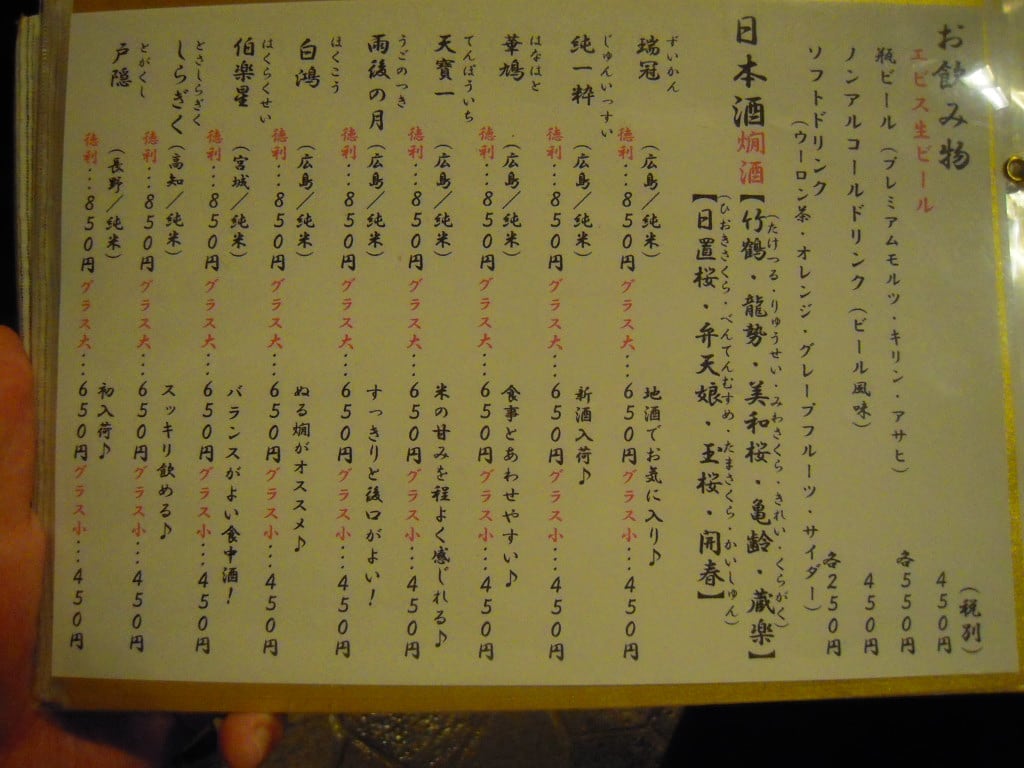 お飲み物
(税別)
エビス生ビール 450円
瓶ビール(プレミアムモルツ・キリン・アサヒ) 各550円
ノンアルコールドリンク(ビール風味) 450円
ソフトドリンク 各250円
(ウーロン茶・オレンジ・グレープフルーツ・サイダー)
日本酒 燗酒【竹鶴・龍勢・美和桜・亀齢・蔵楽】
(たけつる・りゅうせい・みわさくら・きれい・くらがく)
【日置桜・弁天娘・玉桜・開春】
(ひおきさくら・べんてんむすめ・たまさくら・かいしゅん)
ずいかん
瑞冠 (広島/純米) 地酒でお気に入り♪
徳利…850円 グラス大…650円 グラス小…450円
じゅんいっすい
純一粋 (広島/純米) 新酒入荷♪
徳利…850円 グラス大…650円 グラス小…450円
はなはと
華鳩 (広島/純米) 食事とあわせやすい♪
徳利…850円 グラス大…650円 グラス小…450円
てんぽういち
天寶一 (広島/純米) 米の甘みを程よく感じれる♪
徳利…850円 グラス大…650円 グラス小…450円
うごのつき
雨後の月 (広島/純米) すっきりと後口がよい!
徳利…850円 グラス大…650円 グラス小…450円
はくこう
白鴻 (広島/純米) ぬる燗がオススメ♪
徳利…850円 グラス大…650円 グラス小…450円
はくらくせい
伯楽星 (宮城/純米) バランスがよい食中酒!
徳利…850円 グラス大…650円 グラス小…450円
とさしらぎく
しらぎく (高知/純米) スッキリ飲める♪
徳利…850円 グラス大…650円 グラス小…450円
とがくし
戸隠 (長野/純米) 初入荷♪
徳利…850円 グラス大…650円 グラス小…450円